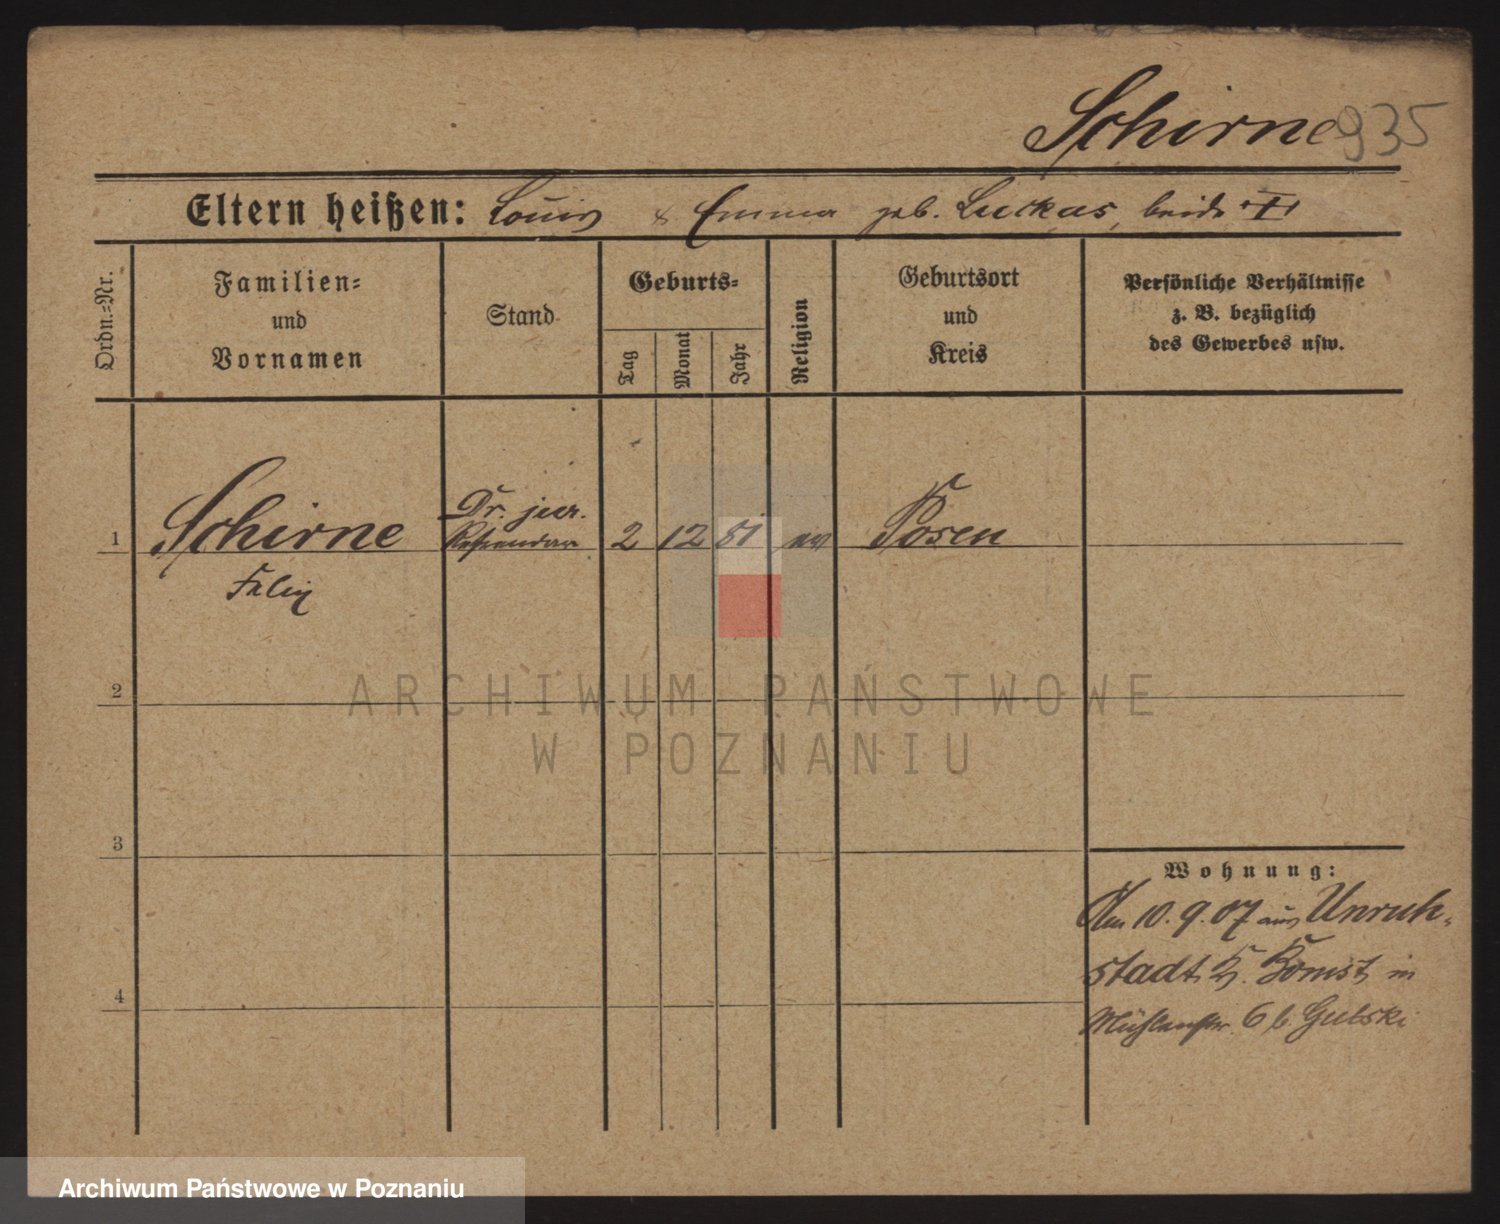 Schirne 935
Eltern heißen: Louis & Emma geb. Luckas, beide
Ordn.=Nr.
Familien=
und
Vornamen
Stand
Geburts=
Tag
Monat
Jahr
Religion
Geburtsort
und
Kreis
Persönliche Verhältnisse
z. B. bezüglich
des Gewerbes usw.
1 Schirne Dr. jur. Referendar 2 12 81 ev Posen
Felix
2
ARCHIWUM PAŃSTWOWE
W POZNANIU
3
Wohnung:
Am 10.9.07 aus Unruh-
stadt, Kr. Bomst, in
4
Mühlenstr. 6 b. Gutski
Archiwum Państwowe w Poznaniu